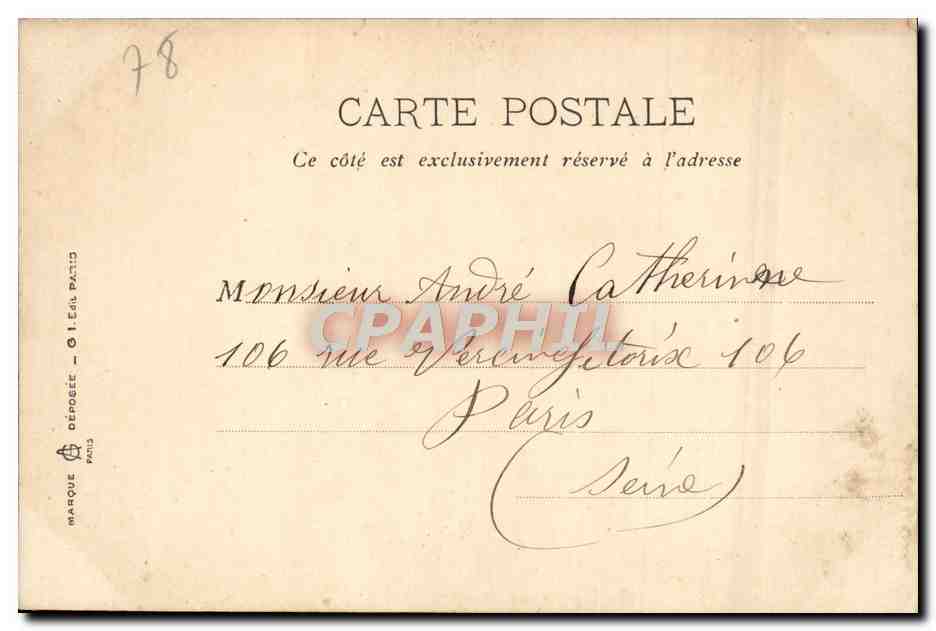 78
CARTE POSTALE
Ce côté est exclusivement réservé à l'adresse
Monsieur André Catherine
106 rue Vercingétorix 106
Paris
(Seine)
CPAPHIL
MARQUE DÉPOSÉE — G I. Edit PARIS
PARIS